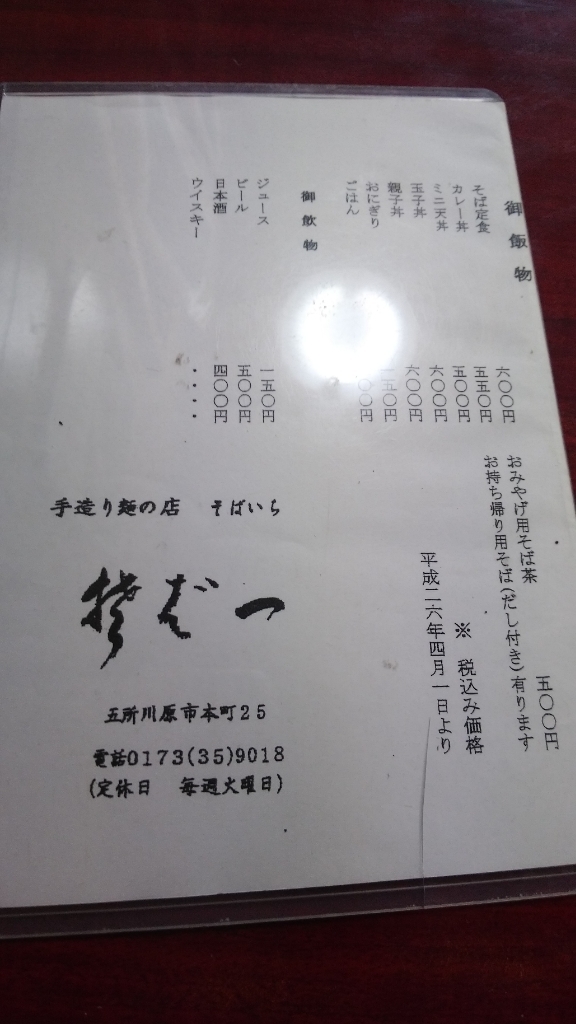 御飯物
そば定食 六〇〇円
カレー丼 五五〇円
ミニ天丼 五〇〇円
玉子丼 六〇〇円
親子丼 六〇〇円
おにぎり 一五〇円
ごはん 〇〇円
御飲物
ジュース 一五〇円
ビール 五〇〇円
日本酒 四〇〇円
ウイスキー ・・・・
おみやげ用そば茶 五〇〇円
お持ち帰り用そば(だし付き)有ります
※ 税込み価格
平成二六年四月一日より
手造り麺の店 そばいち
五所川原市本町25
電話0173(35)9018
(定休日 毎週火曜日)